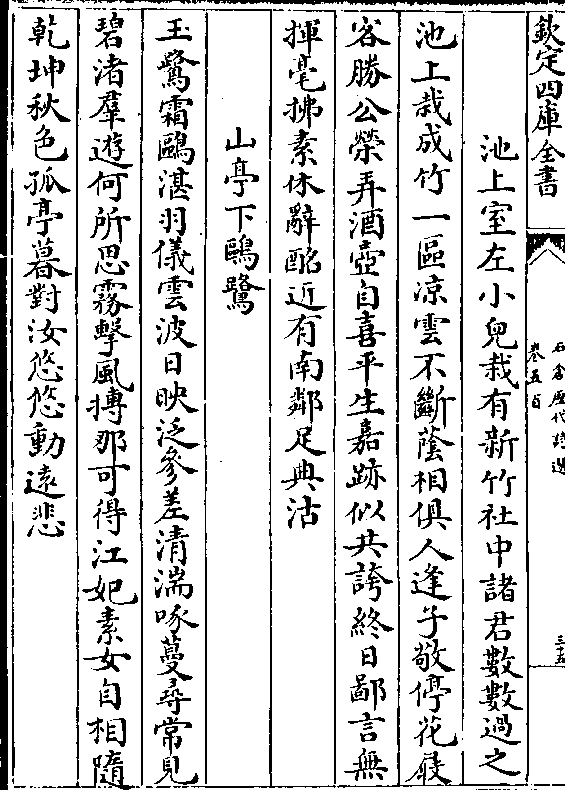 欽定四庫全書
石倉歷代詩選
卷五百
三十五
池上室左小兒栽有新竹社中諸君數數過之
池上栽成竹一區凉雲不斷蔭相俱人逢子敬停花屐
客勝公榮弄酒壺自喜平生嘉跡似共誇終日鄙言無
揮毫拂素休辭酩近有南鄰足典沽
山亭下鷗鷺
玉鷺霜鷗湛羽儀雲波日映泛參差清湍啄蔓尋常見
碧渚羣遊何所思霧擊風摶那可得江妃素女自相隨
乾坤秋色孤亭暮對汝悠悠動遠悲